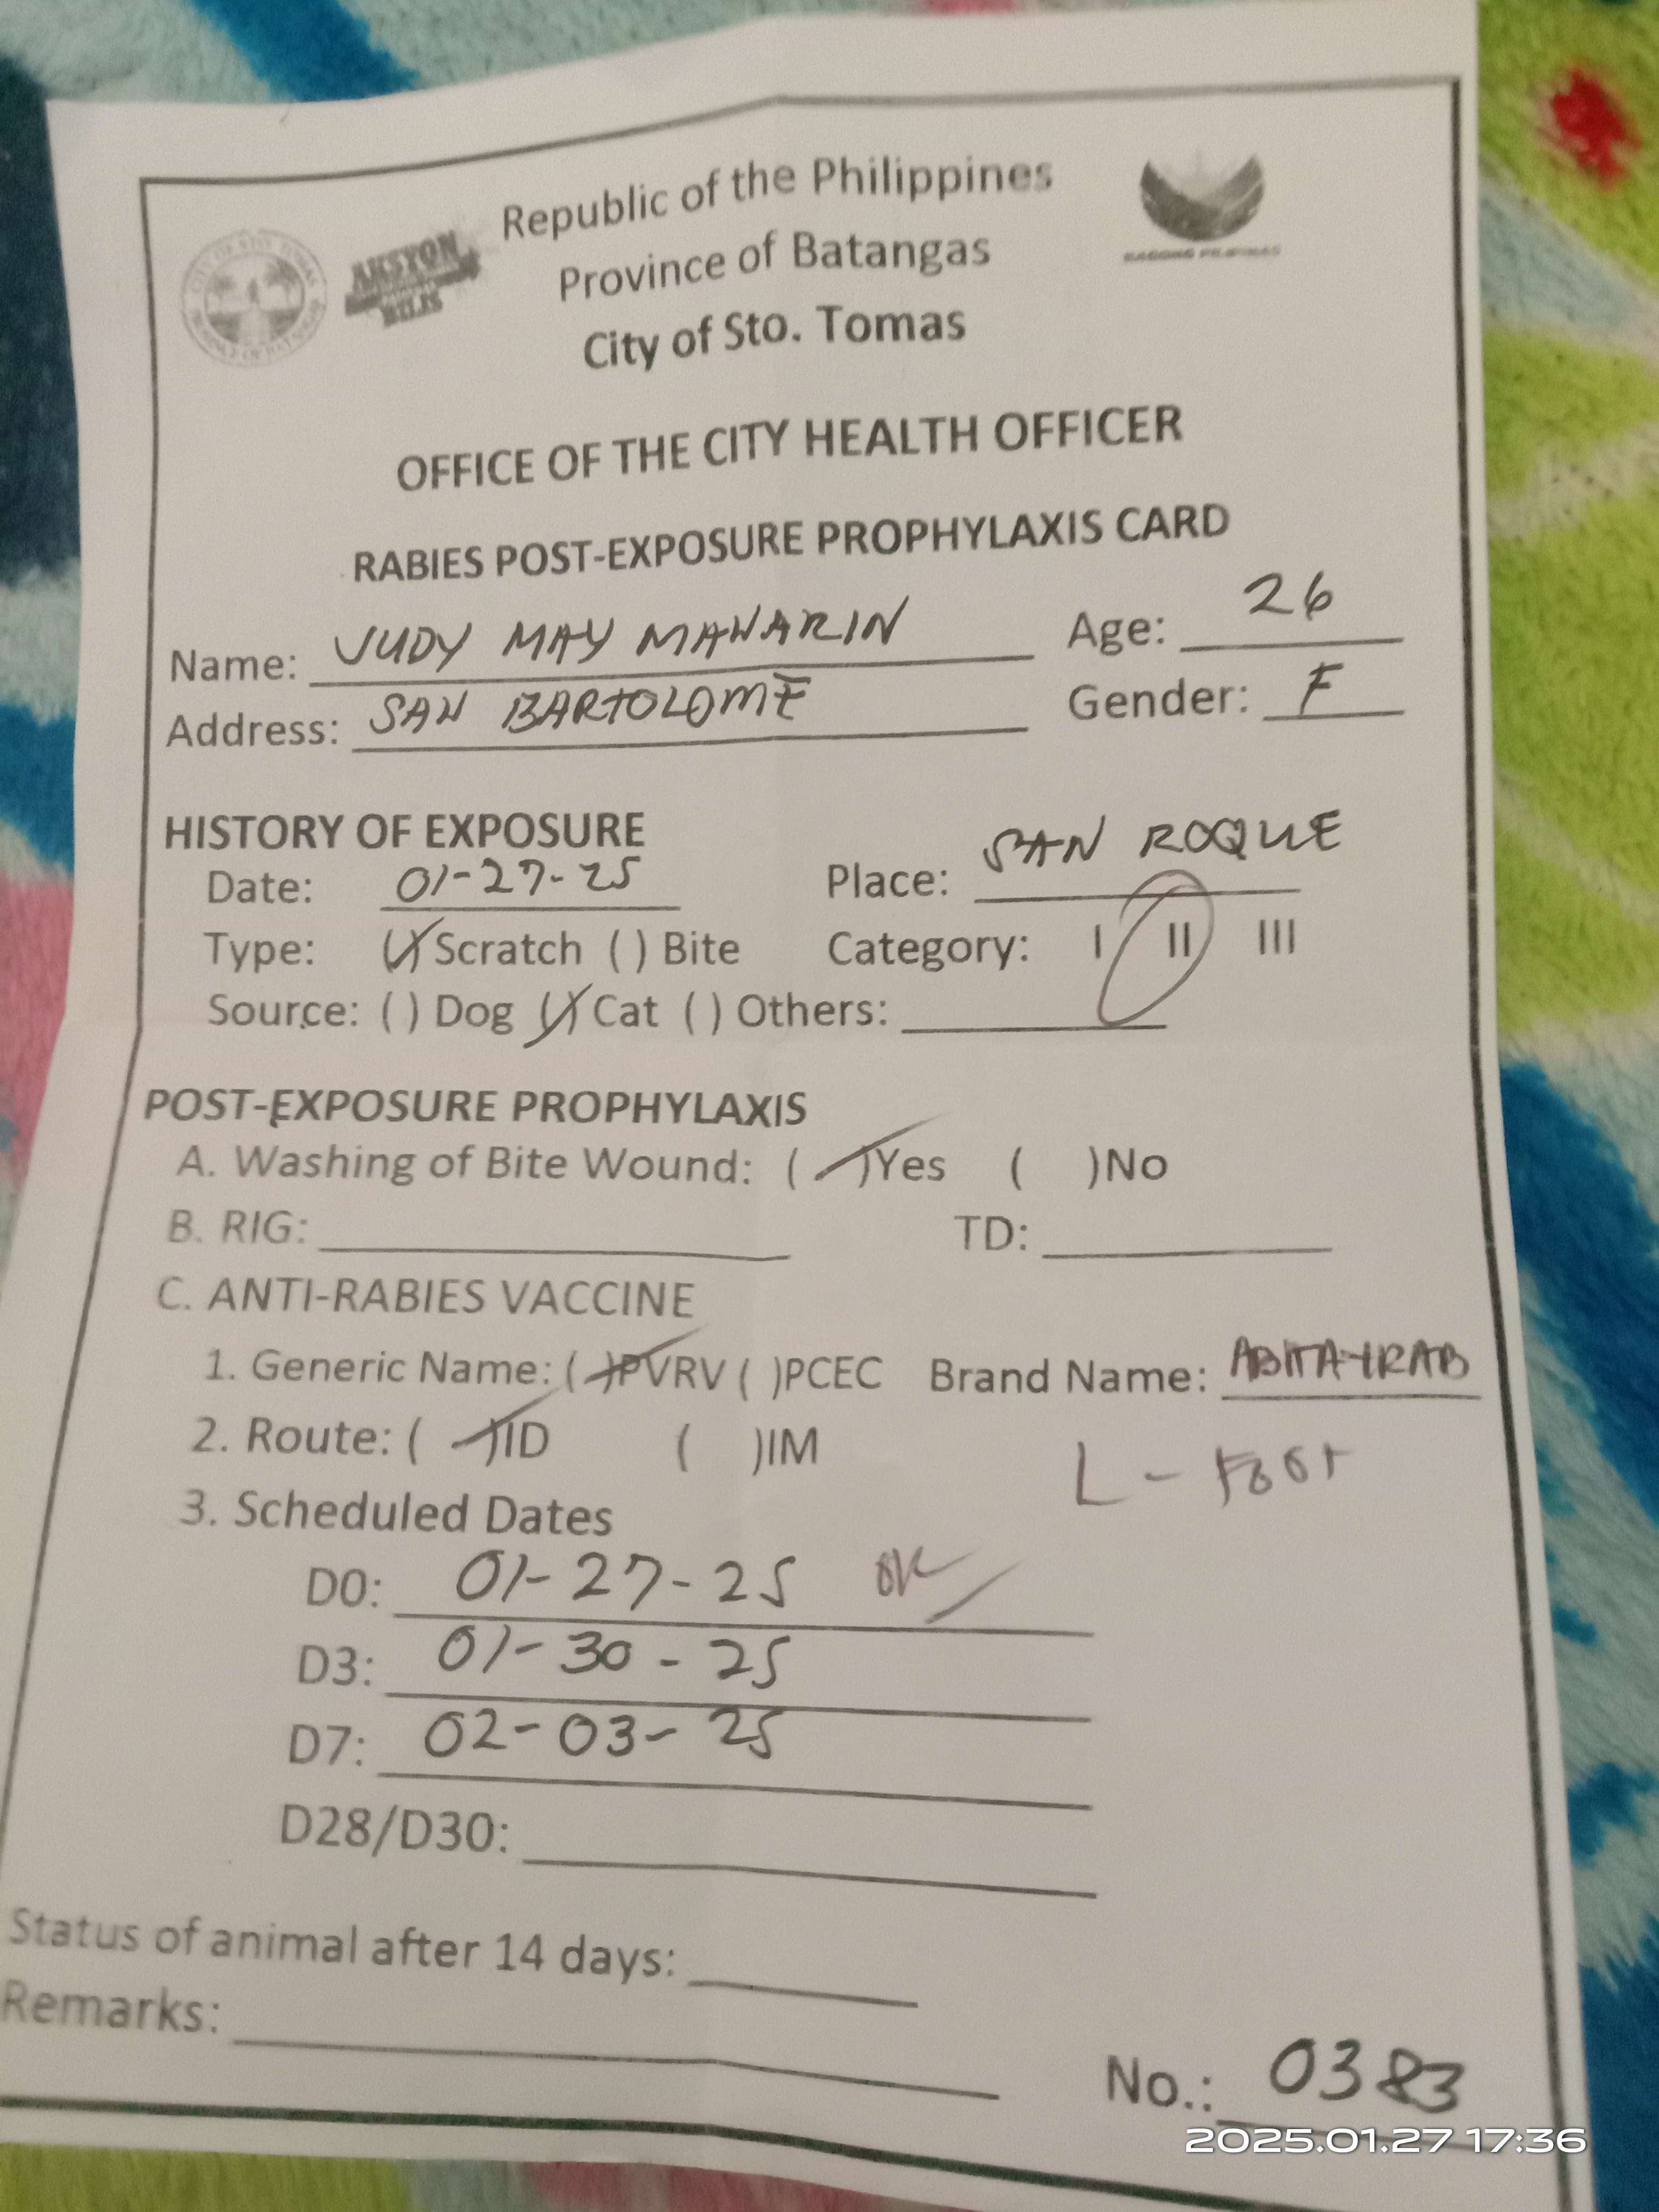 Republic of the Philippines
Province of Batangas
City of Sto. Tomas
AKSYON
BILIS
BAGONG PILIPINAS
OFFICE OF THE CITY HEALTH OFFICER
RABIES POST-EXPOSURE PROPHYLAXIS CARD
Name: JUDY MAY MANARIN Age: 26
Address: SAN BARTOLOME Gender: F
HISTORY OF EXPOSURE
Date: 01-27-25 Place: SAN ROQUE
Type: (/) Scratch ( ) Bite Category: I II III
Source: ( ) Dog (/) Cat ( ) Others:
POST-EXPOSURE PROPHYLAXIS
A. Washing of Bite Wound: (/) Yes ( )No
B. RIG: TD:
C. ANTI-RABIES VACCINE
1. Generic Name: (/)PVRV ( )PCEC Brand Name:
2. Route: (/)ID ( )IM
L - FOOT
3. Scheduled Dates
D0: 01-27-25 OK
D3: 01-30-25
D7: 02-03-25
D28/D30:
Status of animal after 14 days:
Remarks:
No.: 0383
2025.01.27 17:36